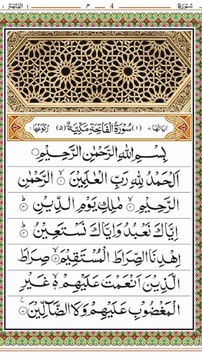 سُورَة 4 ٣ الفَاتِحَة ١
اٰيَاتُهَا ٧ (١) سُوْرَةُ الْفَاتِحَةِ مَكِّيَّةٌ (٥) رُكُوْعُهَا ١
بِسْمِ اللّٰهِ الرَّحْمٰنِ الرَّحِيْمِ
اَلْحَمْدُ لِلّٰهِ رَبِّ الْعٰلَمِيْنَ ۙ الرَّحْمٰنِ
الرَّحِيْمِ ۙ مٰلِكِ يَوْمِ الدِّيْنِ ؕ
اِيَّاكَ نَعْبُدُ وَاِيَّاكَ نَسْتَعِيْنُ ؕ
اِهْدِنَا الصِّرَاطَ الْمُسْتَقِيْمَ ۙ صِرَاطَ
الَّذِيْنَ اَنْعَمْتَ عَلَيْهِمْ ۙ غَيْرِ
الْمَغْضُوْبِ عَلَيْهِمْ وَلَا الضَّآلِّيْنَ